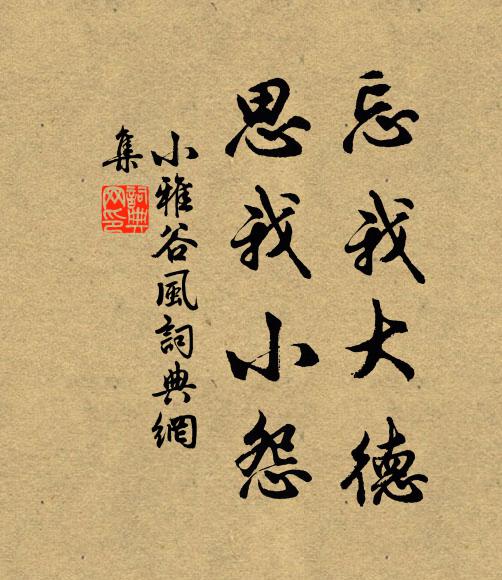 忘我大德
思我小怨
小雅谷風詞典網
集
詞典
网印